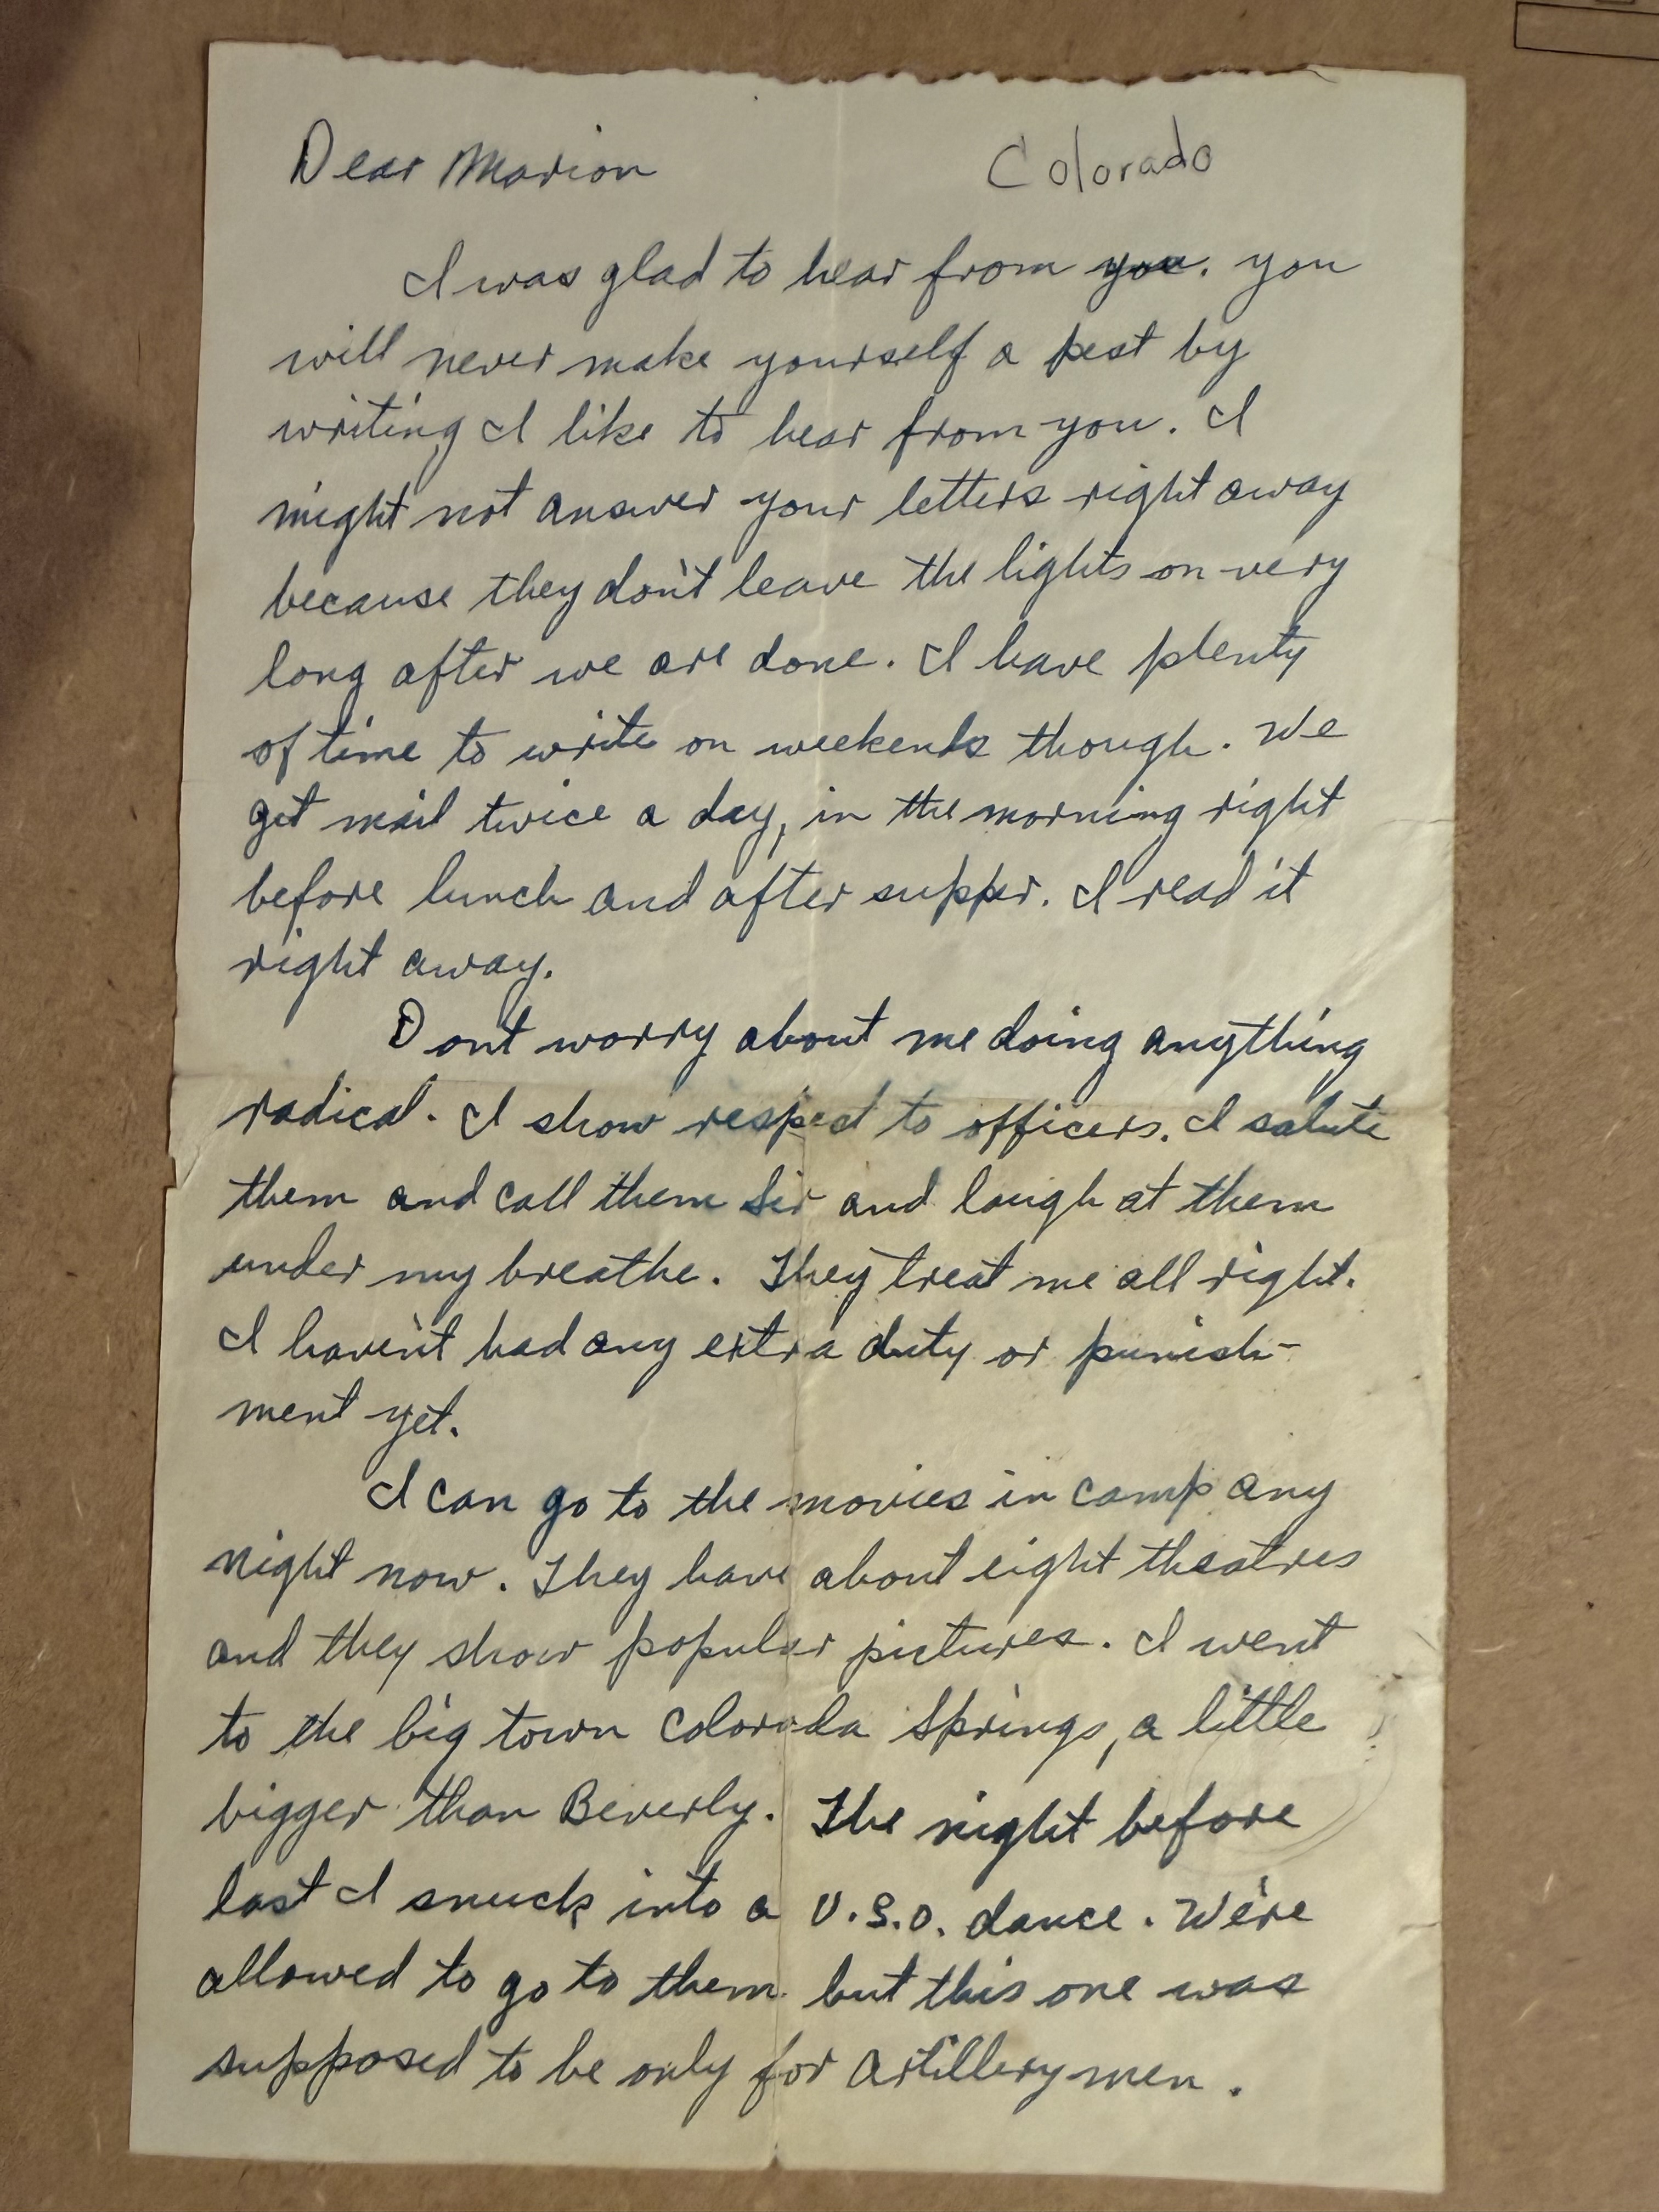 Dear Marion Colorado
I was glad to hear from you. you
will never make yourself a pest by
writing I like to hear from you. I
might not answer your letters right away
because they don't leave the lights on very
long after we are done. I have plenty
of time to write on weekends though. We
get mail twice a day, in the morning right
before lunch and after supper. I read it
right away.
Dont worry about me doing anything
radical. I show respect to officers. I salute
them and call them Sir and laugh at them
under my breathe. They treat me all right.
I haven't had any extra duty or punish-
ment yet.
I can go to the movies in camp any
night now. They have about eight theatres
and they show popular pictures. I went
to the big town Colorado Springs, a little
bigger than Beverly. The night before
last I snuck into a U.S.O. dance. We're
allowed to go to them but this one was
supposed to be only for artillery men.